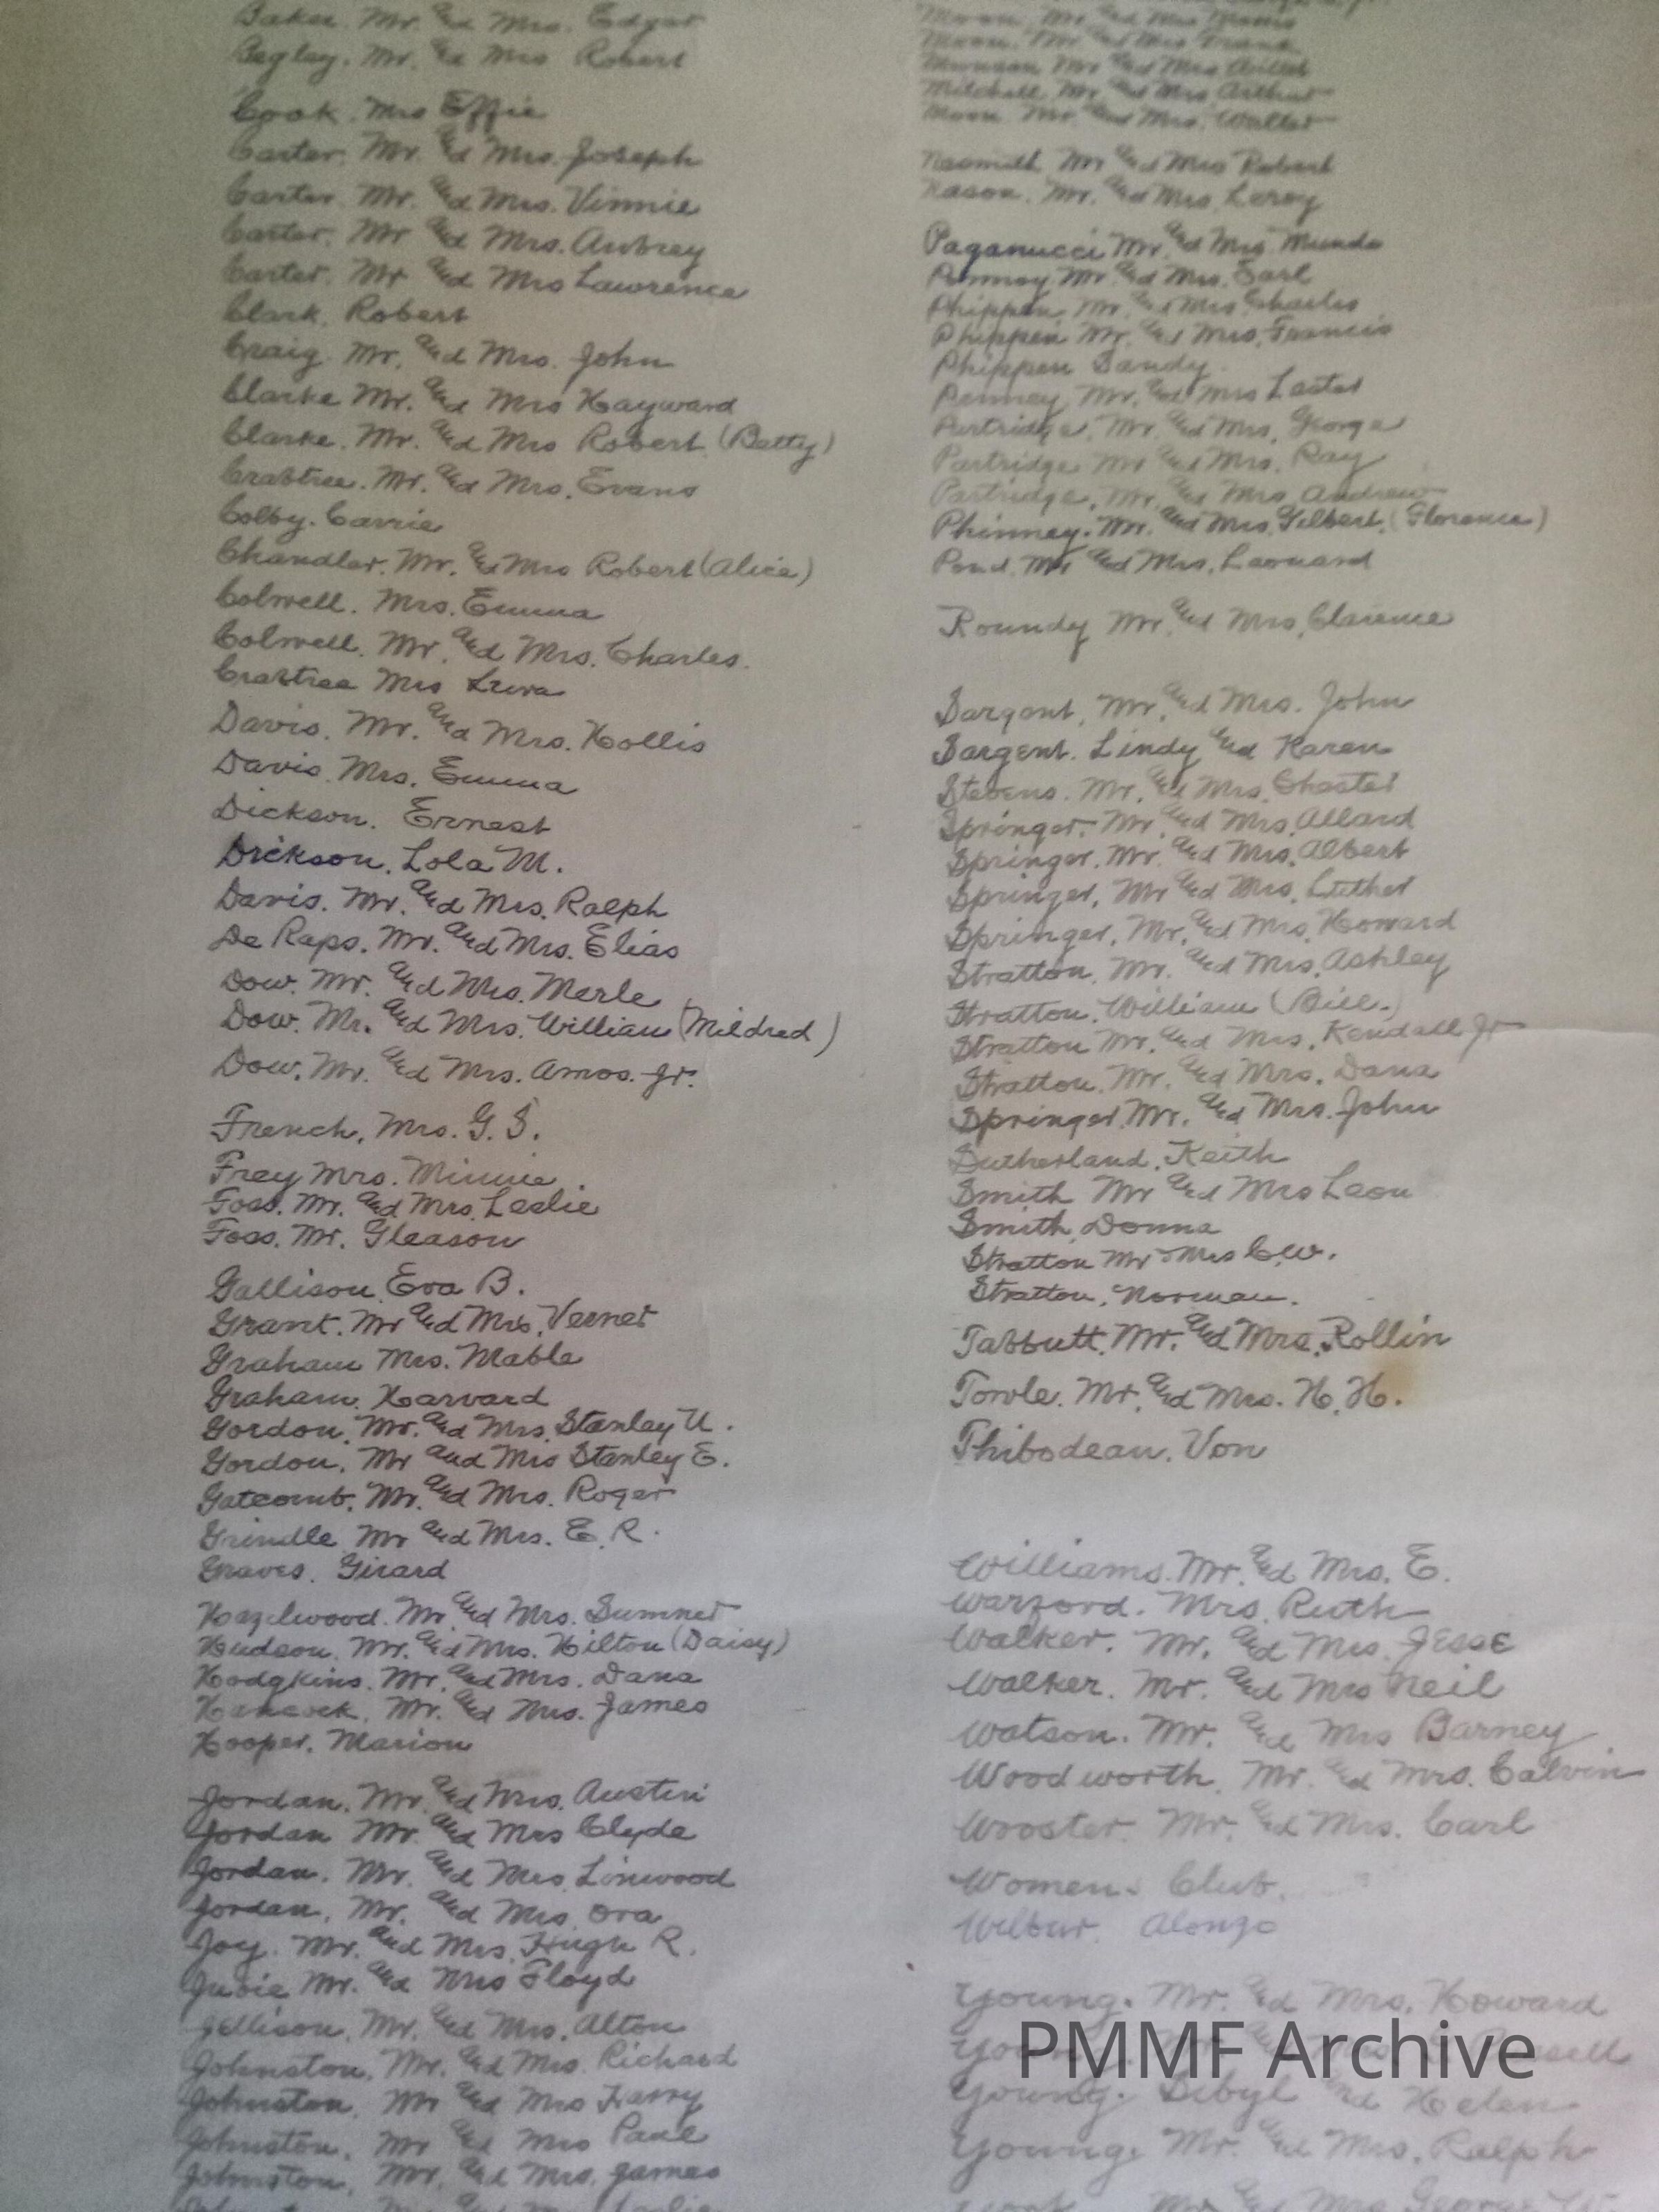 Baker. Mr. and Mrs. Edgar
Begley. Mr. and Mrs Robert
Cook. Mrs Effie
Carter. Mr. and Mrs. Joseph
Carter. Mr. and Mrs. Vinnie
Carter. Mr and Mrs. Aubrey
Carter. Mr and Mrs Lawrence
Clark. Robert
Craig. Mr. and Mrs. John
Clarke Mr. and Mrs Hayward
Clarke. Mr. and Mrs Robert (Betty)
Crabtree. Mr. and Mrs. Evans
Colby. Carrie
Chandler. Mr. and Mrs Robert (Alice)
Colwell. Mrs. Emma
Colwell. Mr. and Mrs. Charles.
Crabtree Mrs
Davis. Mr. and Mrs. Hollis
Davis. Mrs. Emma
Dickson. Ernest
Dickson. Lola M.
Davis. Mr. and Mrs. Ralph
De Raps. Mr. and Mrs. Elias
Dow. Mr. and Mrs. Merle
Dow. Mr. and Mrs. William (Mildred)
Dow. Mr. and Mrs. Amos. Jr.
French, Mrs. G. S.
Frey Mrs. Minnie.
Foss. Mr. and Mrs. Leslie
Foss. Mr. Gleason
Gallison Eva B.
Grant. Mr and Mrs. Verner
Graham Mrs. Mable
Graham. Harvard
Gordon. Mr. and Mrs. Stanley U.
Gordon. Mr and Mrs Stanley E.
Gatcomb. Mr. and Mrs. Roger
Grindle Mr and Mrs. E. R.
Graves. Girard
Hazelwood. Mr. and Mrs. Sumner
Hudson. Mr. and Mrs. Hilton (Daisy)
Hodgkins. Mr. and Mrs. Dana
Hancock. Mr. and Mrs. James
Hooper. Marion
Jordan. Mr. and Mrs. Austin
Jordan Mr. and Mrs Clyde
Jordan. Mr. and Mrs. Linwood
Jordan. Mr. and Mrs. Ora
Joy. Mr. and Mrs. Hugh R.
Mr. and Mrs Floyd
Jellison. Mr. and Mrs. Alton
Johnston. Mr. and Mrs. Richard
Johnston. Mr and Mrs Harry
Johnston. Mr and Mrs Paul
Johnston. Mr. and Mrs. James
Moon. Mr. and Mrs
Moon. Mr. and Mrs Frank
Mr and Mrs
Mitchell. Mr. and Mrs Arthur
Moon. Mr. and Mrs. Walter
Nesmith Mr and Mrs Robert
Nason. Mr. and Mrs. Leroy
Paganucci Mr. and Mrs. Mundo
Penney Mr. and Mrs. Earl
Phippen Mr. and Mrs. Charles
Phippen Mr. and Mrs. Francis
Phippen Sandy.
Penney Mr. and Mrs Lester
Partridge. Mr. and Mrs. George
Partridge Mr and Mrs. Ray
Partridge. Mr. and Mrs Andrew
Phinney. Mr. and Mrs. Gilbert. (Florence)
Pond. Mr and Mrs. Leonard
Roundy Mr. and Mrs. Clarence
Sargent. Mr. and Mrs. John
Sargent. Lindy and Karen
Stevens. Mr. and Mrs. Chester
Springer. Mr. and Mrs. Allard
Springer. Mr. and Mrs. Albert
Springer. Mr and Mrs. Luther
Springer. Mr. and Mrs. Howard
Stratton. Mr. and Mrs. Ashley
Stratton. William (Bill.)
Stratton Mr. and Mrs. Kendall Jr
Stratton. Mr. and Mrs. Dana
Springer. Mr. and Mrs. John
Sutherland. Keith
Smith Mr and Mrs Leon
Smith, Donna
Stratton Mr Mrs C.W.
Stratton. Norman.
Tabbutt. Mr. and Mrs. Rollin
Towle. Mr. and Mrs. H. H.
Thibodeau. Von
Williams. Mr. and Mrs. E.
Warford. Mrs. Ruth
Walker. Mr. and Mrs. Jesse
Walker. Mr. and Mrs Neil
Watson. Mr. and Mrs Barney
Woodworth. Mr. and Mrs. Calvin
Wooster. Mr. and Mrs. Carl
Womens Club.
Wilbur. Alonzo
Young. Mr. and Mrs. Howard
Young.
Young. Sibyl and Helen
Young. Mr. and Mrs. Ralph
PMMF Archive